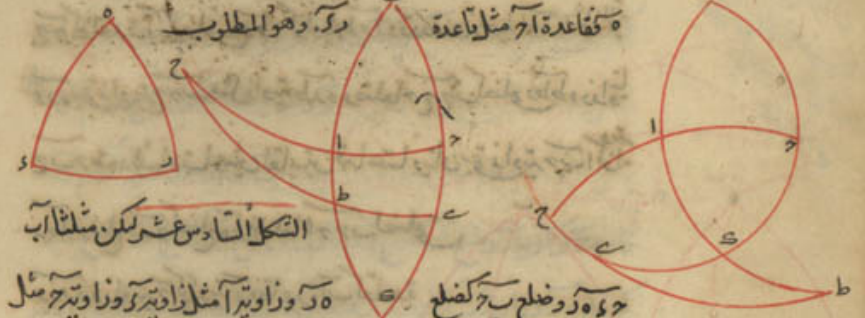 ه فقاعدة اج مثل قاعدة
دز. وهو المطلوب
الشكل السادس عشر ليكن مثلثا آب
ج ده ز وضلع ب ج كضلع
ه ز وزاوية آ مثل زاوية د وزاوية ج مثل
ه
د
ز
ح
ا
ج
ط
ا
ج
ح
ط